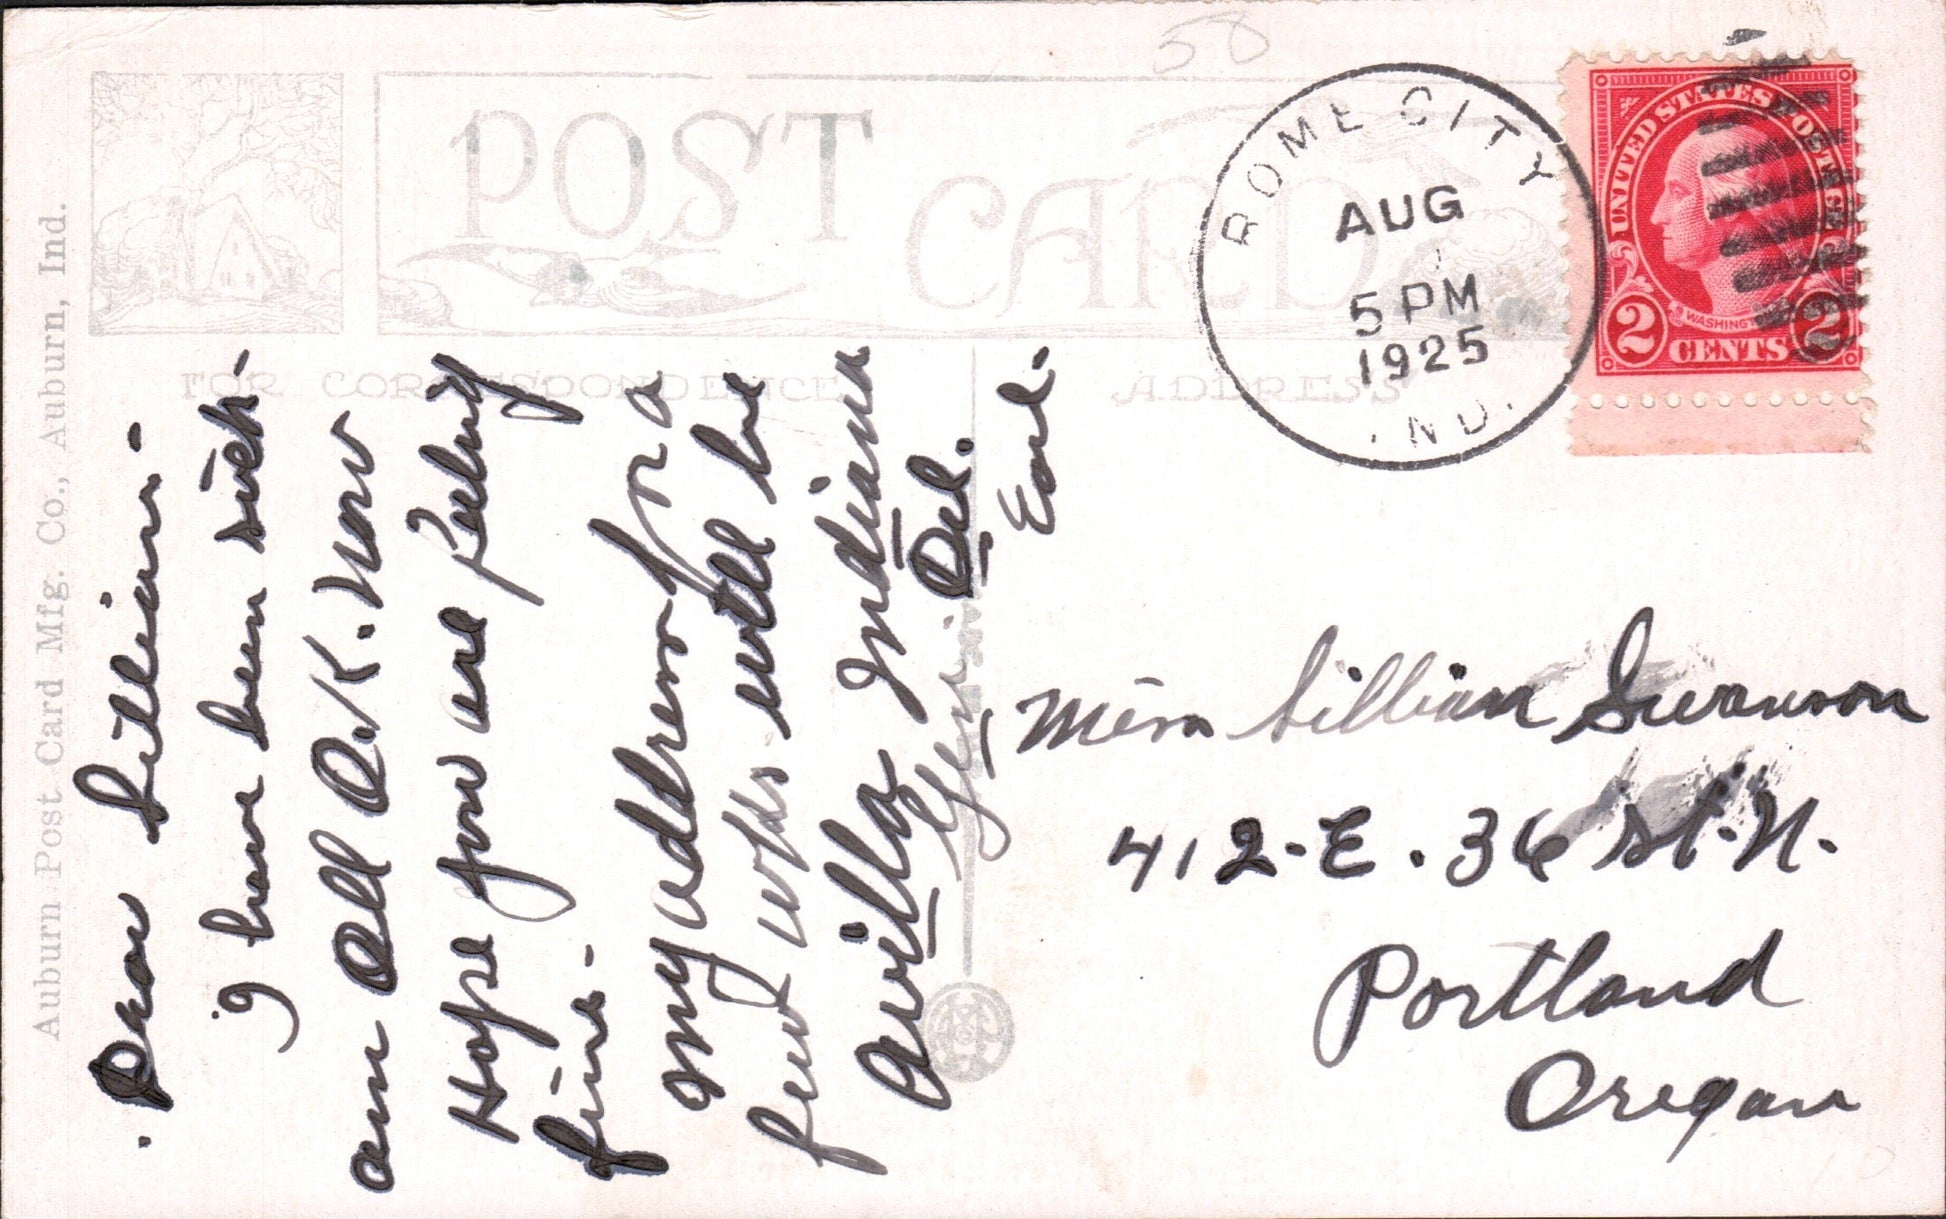 58
POST CARD
FOR CORRESPONDENCE
ADDRESS
Auburn Post Card Mfg. Co., Auburn, Ind.
ROME CITY
AUG
5 PM
1925
IND.
UNITED STATES POSTAGE
WASHINGTON
2 CENTS 2
Dear Lillian -
I have been sick -
am All O.K. now
Hope you are feeling
fine -
my address for a
few wks. will be
Avilla Indiana
Gen. Del.
Earl -
Miss Lillian Swanson
412 - E. 36 St. N.
Portland
Oregon
10